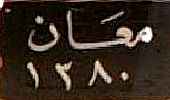 معَان
١٣٨٠